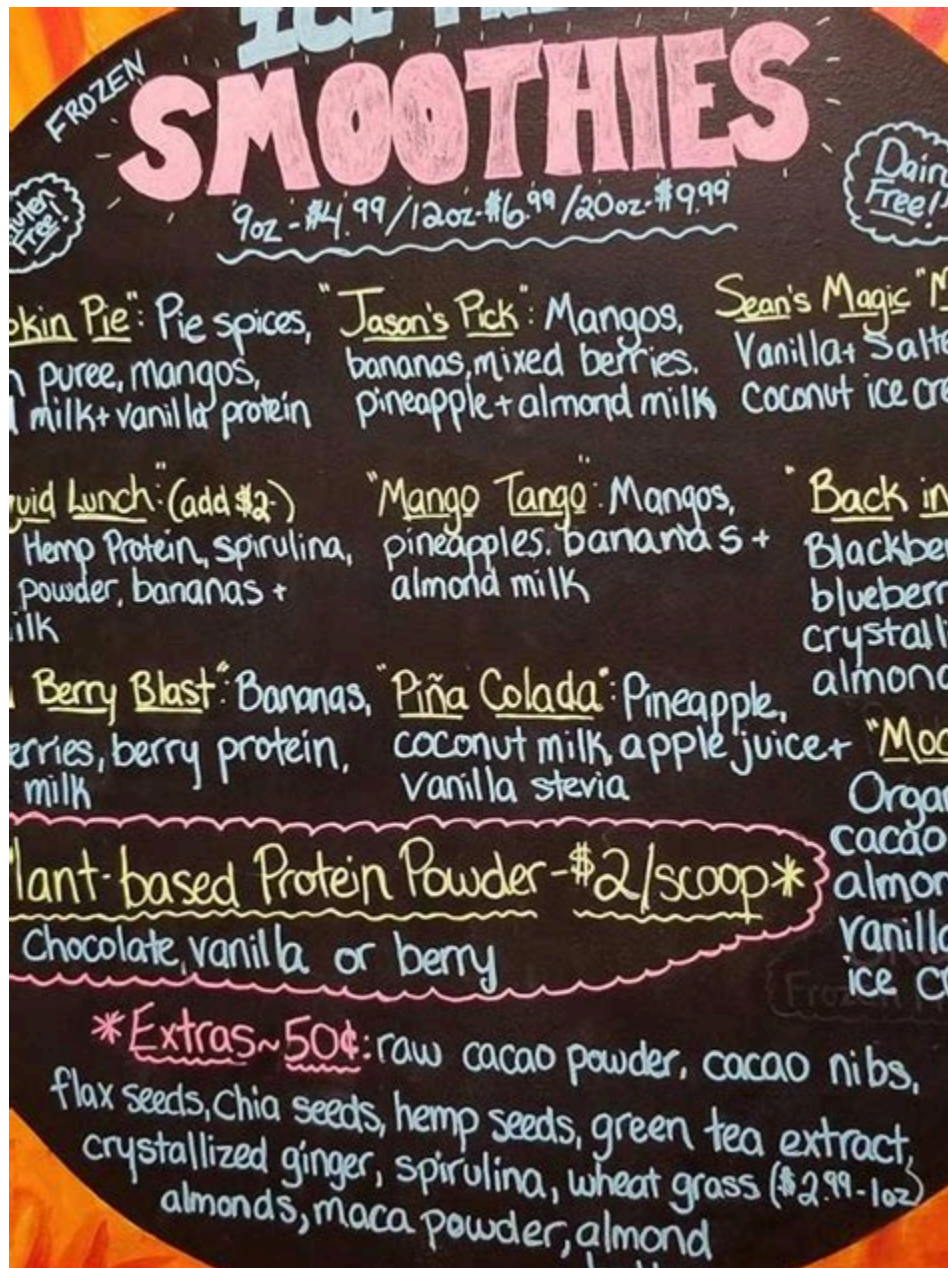 FROZEN
SMOOTHIES
Free!
9oz-$4.99/12oz-$6.99/20oz-$9.99
Free!
Pie": Pie spices,
puree, mangos,
milk+vanilla protein
"Jason's Pick": Mangos,
bananas, mixed berries.
pineapple+almond milk
Sean's Magic
Vanilla+
Coconut ice
Lunch": (add $2-)
Hemp Protein, spirulina,
powder, bananas +
"Mango Tango": Mangos,
pineapples. bananas +
almond milk
"Back in
Berry Blast": Bananas,
berry protein,
milk
"Piña Colada": Pineapple,
coconut milk, apple juice+
Vanilla stevia
cacao
ice
Plant-based Protein Powder-$2/scoop*
Chocolate, vanilla or berry
*Extras~50¢: raw cacao powder, cacao nibs,
flax seeds, chia seeds, hemp seeds, green tea extract,
crystallized ginger, spirulina, wheat grass ($2.99-1oz)
almonds, maca powder, almond